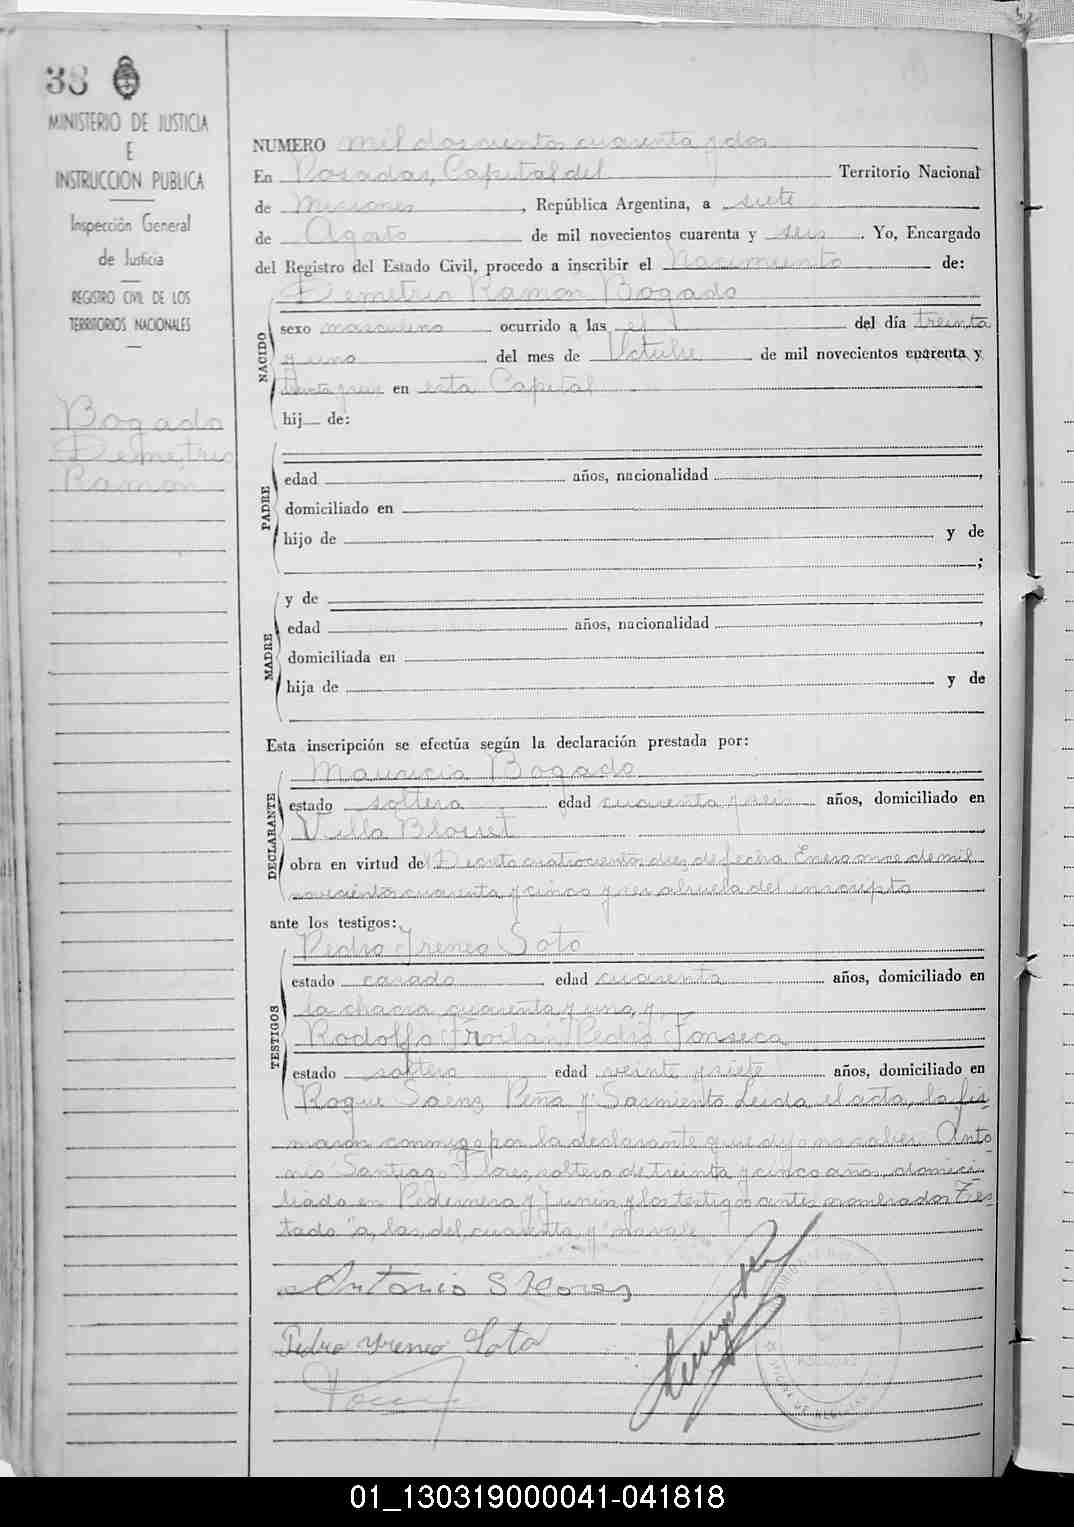 38
MINISTERIO DE JUSTICIA
E
INSTRUCCION PUBLICA
Inspección General
de Justicia
REGISTRO CIVIL DE LOS
TERRITORIOS NACIONALES
Bogado
Demetrio
Ramon
NUMERO mil doscientos cuarenta y dos
En Posadas, Capital del Territorio Nacional
de Misiones, República Argentina, a siete
de Agosto de mil novecientos cuarenta y seis. Yo, Encargado
del Registro del Estado Civil, procedo a inscribir el Nacimiento de:
Demetrio Ramon Bogado
NACIDO
sexo masculino ocurrido a las el del día treinta
y uno del mes de Octubre de mil novecientos cuarenta y
en esta Capital
hij de:
PADRE
edad años, nacionalidad ,
domiciliado en
hijo de y de
;
MADRE
y de
edad años, nacionalidad ,
domiciliada en
hija de y de
Esta inscripción se efectúa según la declaración prestada por:
DECLARANTE
Mauricia Bogado
estado soltera edad cuarenta y seis años, domiciliado en
Villa Blosset
obra en virtud de Dcreto cuatrocientos diez de fecha Enero once de mil
novecientos cuarenta y cinco y ser abuela del inscripto
ante los testigos:
TESTIGOS
Pedro Ireneo Soto
estado casado edad cuarenta años, domiciliado en
la chacra cuarenta y uno, y
Rodolfo Froilan Pedro Fonseca
estado soltero edad veinte y siete años, domiciliado en
Roque Saenz Peña y Sarmiento Leida el acta, la fir-
maron conmigo por la declarante que dijo no saber Anto
nio Santiago Flores, soltero de treinta y cinco años, domici-
liado en Pedernera y Junin y los testigos antes nombrados Tes-
tado "a, las, del, cuarenta, y" no vale
Antonio S Flores
Pedro Ireneo Soto
01_130319000041-041818